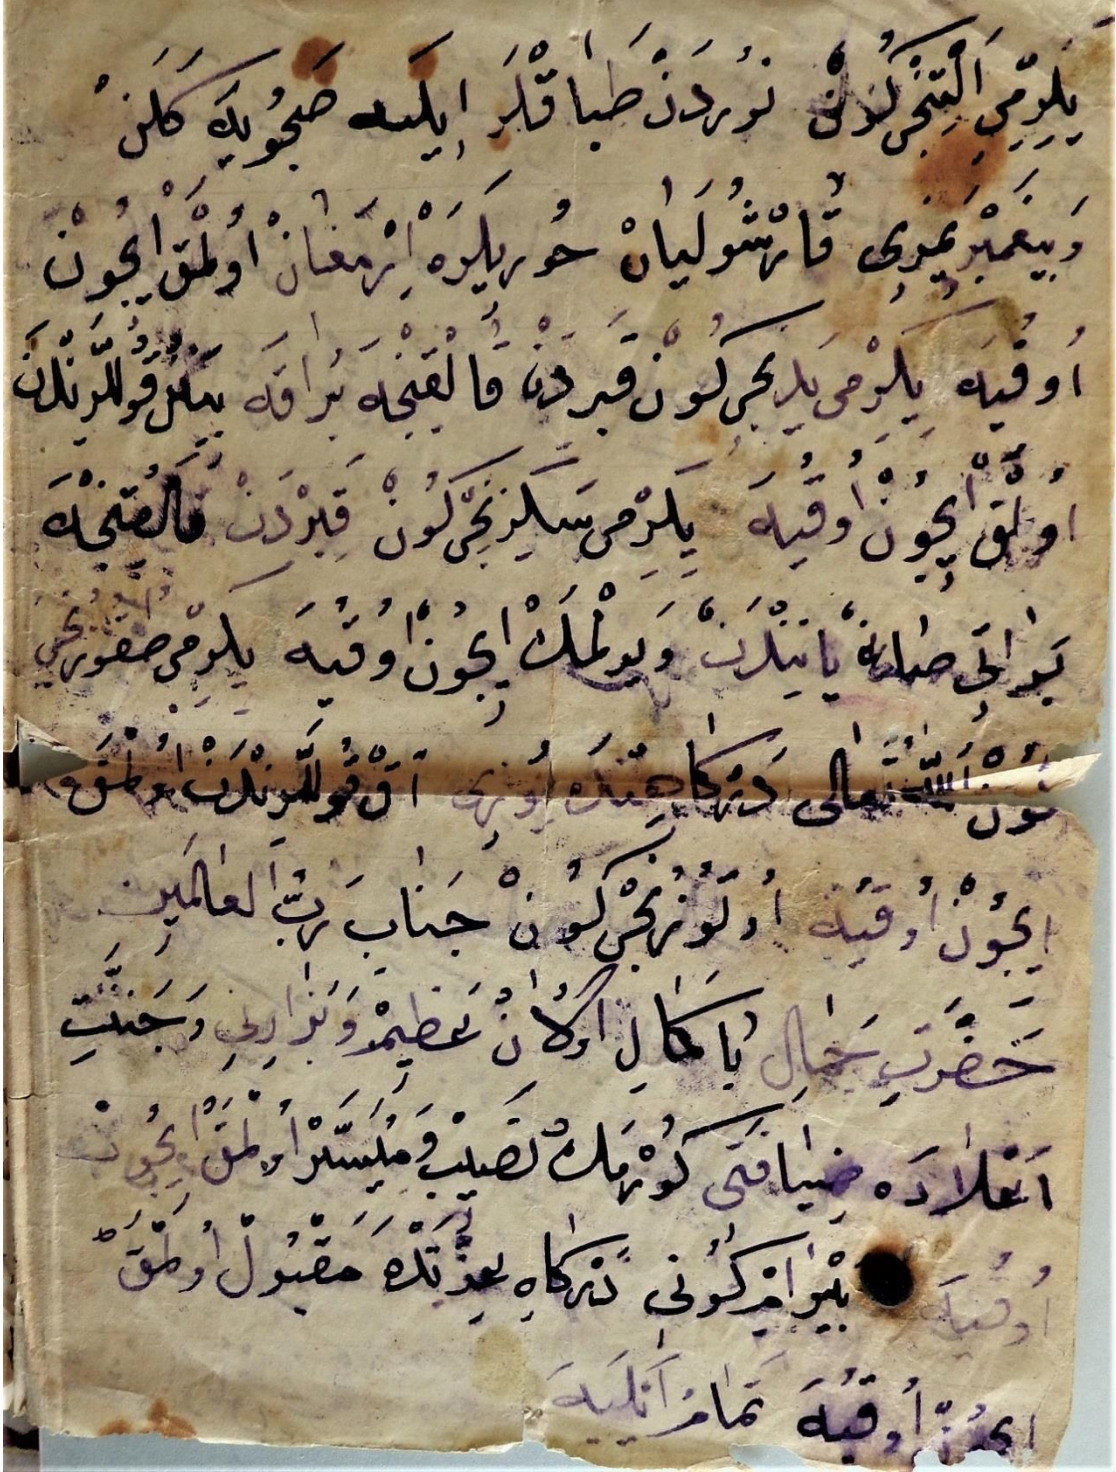 يِكِرْمِي اَلْتِنْجِى كُونْ نُورْدَنْ طَبَاقْلَرْ اِيلَيه كَلَنْ
وَپيغَمْبَرِيمِزِى قَارْشُولَيَانْ حُورِيلَرَه اِرْمَغَانْ اُولْمَقْ اِيچُونْ
اُوقُيَه يِكِرْمِى يَدِنْجِى كُونْ قَبِرْدَنْ قَالْقِنْجَه بُرَاقَه بِينَنْ قُوللَرِنْدَنْ
اُولْمَقْ اِيچُونْ اُوقُيَه يِكِرْمِى سَكِزِنْجِى كُونْ قَبِرْدَنْ قَالْقِنْجَه
بَرَاتِى صَاغ يَانِنْدَنْ وَيرِلْمَكْ اِيچُونْ اُوقُيَه يِكِرْمِى طُقُوزِنْجِى
كُونْ اَللّٰهُ تَعَالى دَرْكَاهِنْدَه يُوزِى آقْ قُوللَرِنْدَنْ اُولْمَقْ
اِيچُونْ اُوقُيَه اُوتُوزِنْجِى كُونْ جَنَابِ رَبُّ الْعَالَمِينْ
حَضْرَتِ جَمَالِ بَاكَمَالِ اُولَانْ عَظِيمْ وَبَرَاتِنِى وَجَنَّتِ
اَعْلَادَه ضِيَافَتِى كُورْمَكْ نَصِيبْ وَمُيَسَّرْ اُولْمَقْ اِيچُونْ
اُوقُيَه بَيْرَامْ كُونِى دَرْكَاهِ عِزَّتْدَه مَقْبُولْ اُولْمَقْ
اِيچُونْ اُوقُيَه تَمَامْ اَيْلَيَه